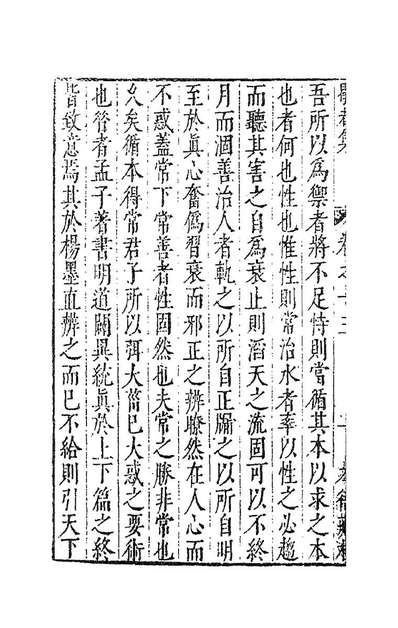 卷之十三
吾所以爲禦者將不足恃則當循其本以求之本
也者何也性也惟性則常治水者率以性之必趨
而聽其害之自爲衰止則滔天之流固可以不終
月而涸善治人者軌之以所自正牖之以所自明
至於眞心奮僞習衰而邪正之辨瞭然在人心而
不惑蓋常下常善者性固然也夫常之勝非常也
久矣循本得常君子所以弭大菑已大惑之要術
也昔者孟子著書明道闢異統眞於上下篇之終
皆致意焉其於楊墨直辨之而已不給則引天下